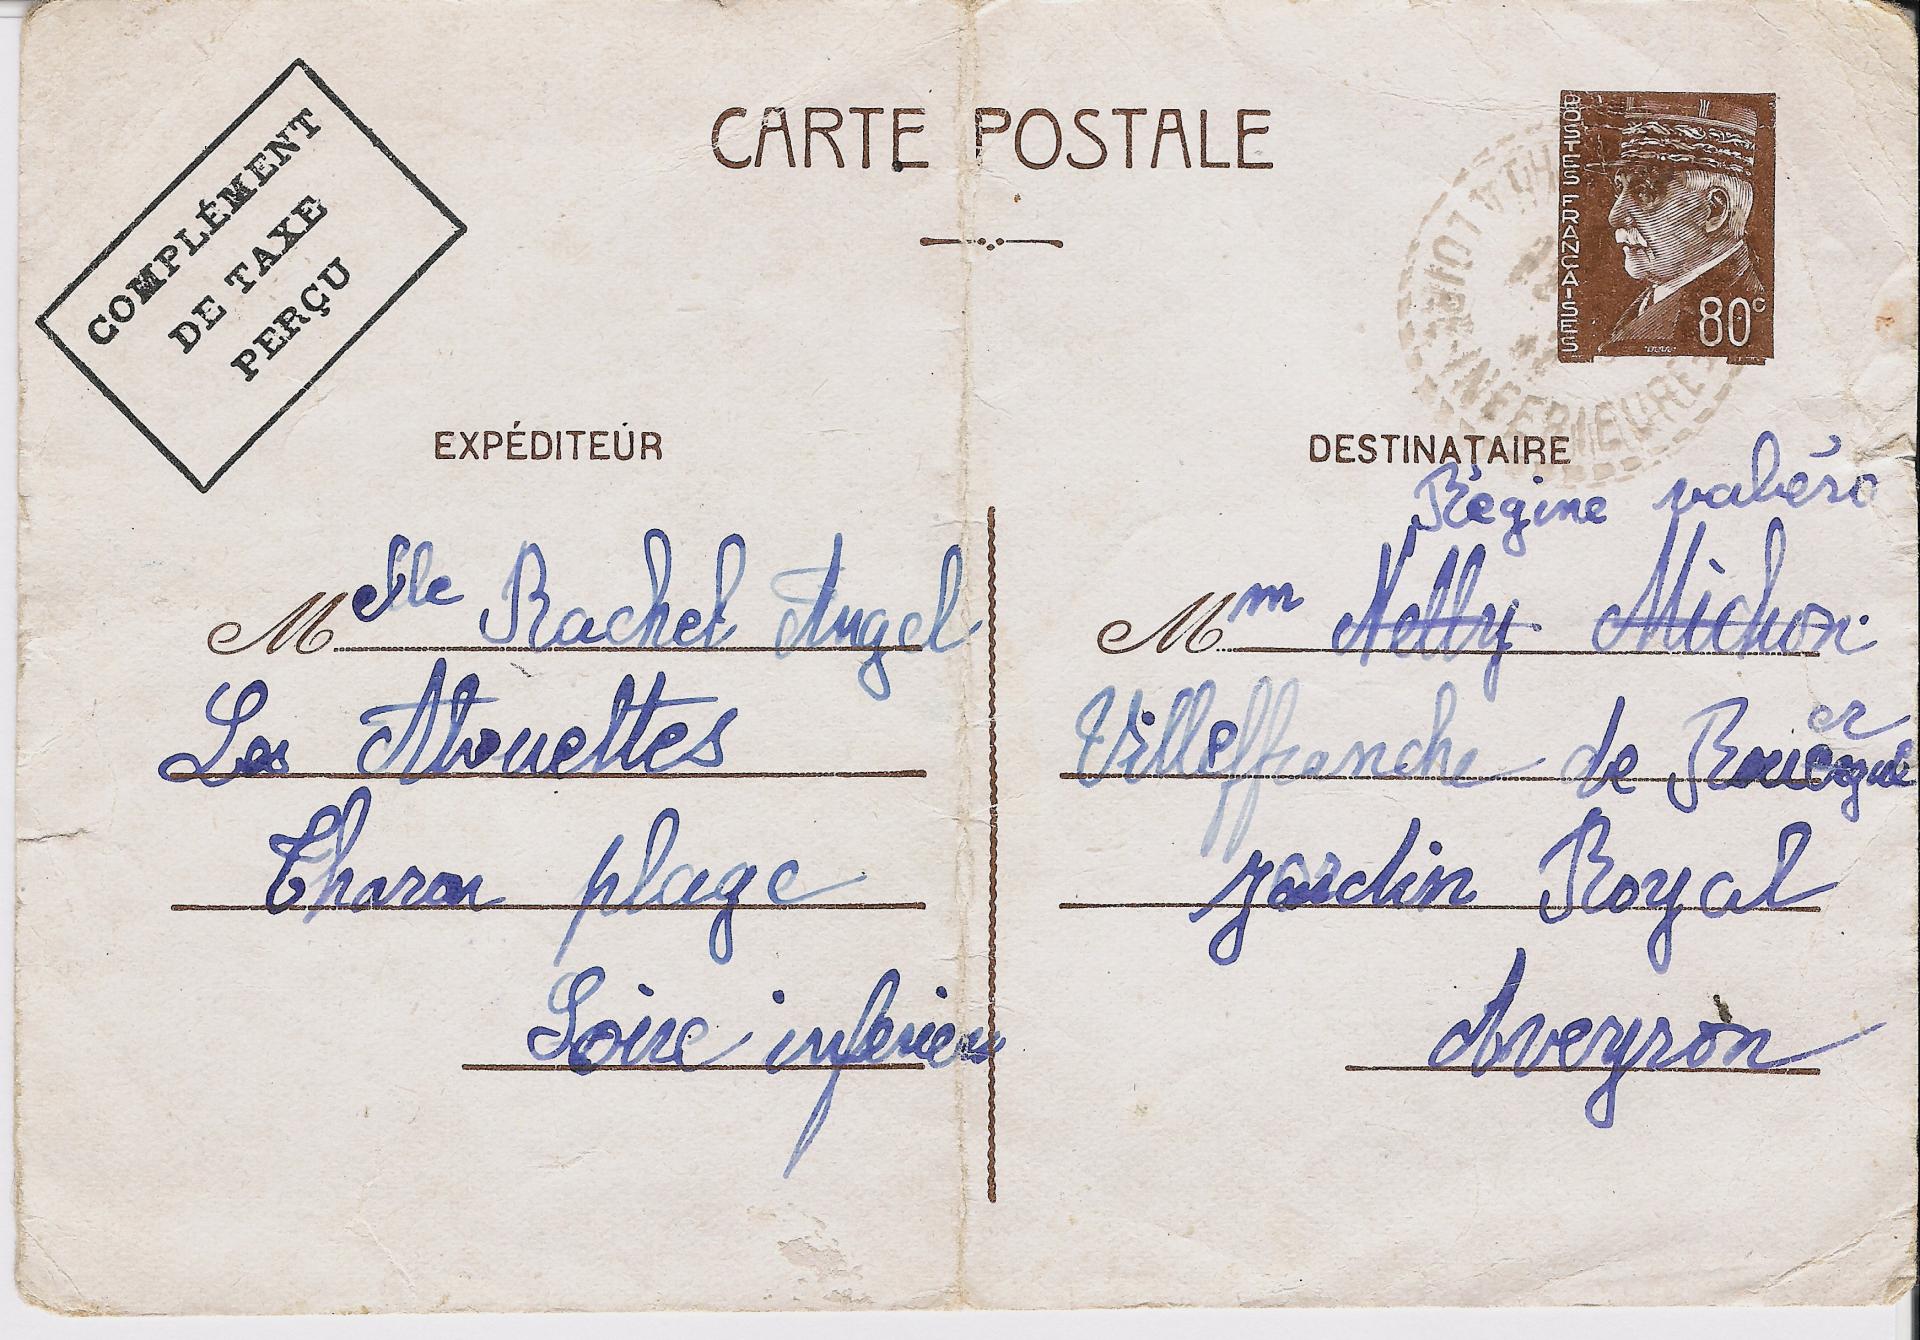 COMPLÉMENT
DE TAXE
PERÇU
CARTE POSTALE
POSTES FRANÇAISES
80c
LOIRE INFERIEURE
EXPÉDITEUR
Melle Rachel Angel
Les Alouettes
Tharon plage
Loire inferieu
DESTINATAIRE
Régine valéro
Mm Nelly Michon
Villeffranche de Rouergue
er
Jardin Royal
Aveyron